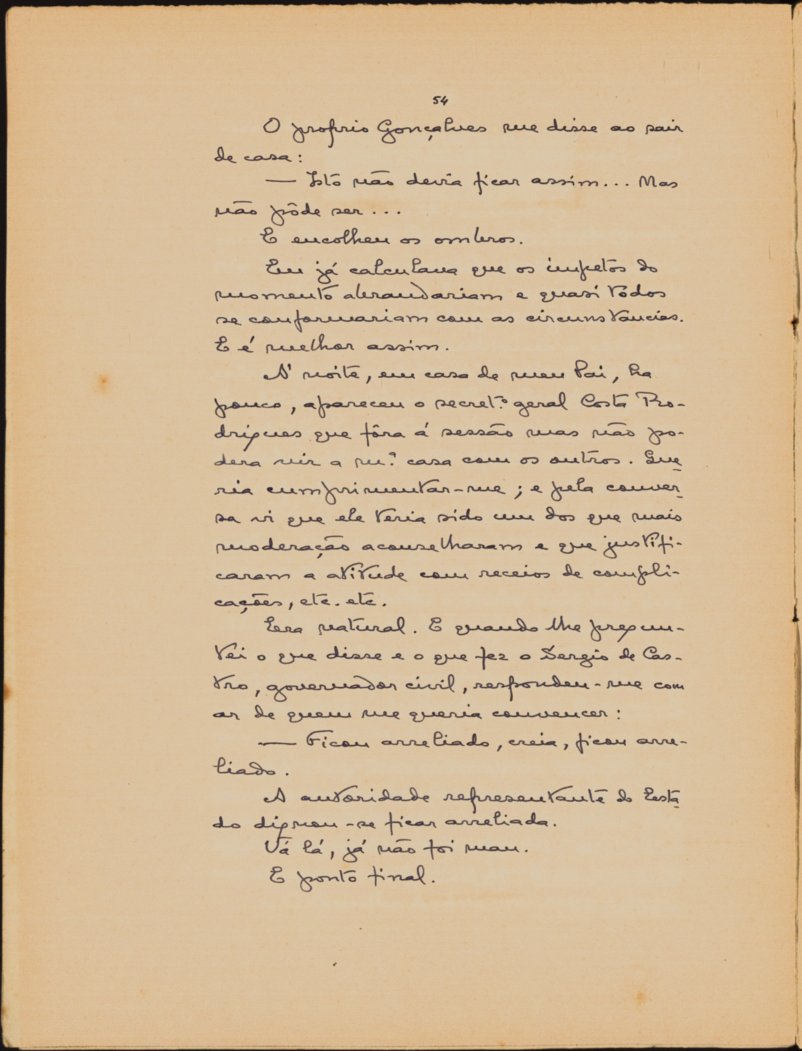 54
O proprio Gonçalves me disse ao sair
de casa:
— Isto não devia ficar assim... Mas
não póde ser...
E encolheu os ombros.
Eu já calculava que os impetos do
momento abrandariam e quasi todos
se conformariam com as circunstancias.
E é melhor assim.
A' noite, em casa de meu Pai, ha
pouco, apareceu o secret.º geral Costa Ro-
drigues que fôra á sessão mas não po-
dera vir a m.ª casa com os outros. Que-
ria cumprimentar-me; e pela conver-
sa vi que ele teria sido um dos que mais
moderação aconselharam e que justifi-
caram a atitude com receios de compli-
cações, etc. etc.
Era natural. E quando lhe pregun-
tei o que disse e o que fez o Sergio de Cas-
tro, governador civil, respondeu-me com
ar de quem me queria convencer:
— Ficou arreliado, creia, ficou arre-
liado.
A autoridade representante do Esta-
do dignou-se ficar arreliada.
Vá lá, já não foi mau.
E ponto final.